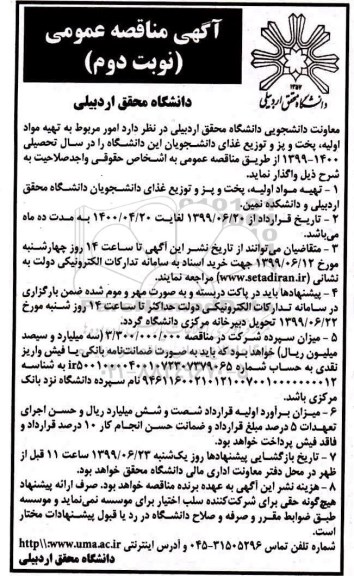 آگهی مناقصه عمومی
(نوبت دوم)
۱۳۵۷
دانشگاه محقق اردبیلی
دانشگاه محقق اردبیلی
معاونت دانشجویی دانشگاه محقق اردبیلی در نظر دارد امور مربوط به تهیه مواد
اولیه، پخت و پز و توزیع غذای دانشجویان این دانشگاه را در سال تحصیلی
۱۴۰۰-۱۳۹۹ از طریق مناقصه عمومی به اشخاص حقوقی واجدصلاحیت به
شرح ذیل واگذار نماید.
۱ - تهیه مواد اولیه، پخت و پز و توزیع غذای دانشجویان دانشگاه محقق
اردبیلی و دانشکده نمین.
۲ - تاریخ قرارداد از ۱۳۹۹/۰۶/۲۰ لغایت ۱۴۰۰/۰۴/۲۰ به مدت ده ماه
می‌باشد.
۳ - متقاضیان می‌توانند از تاریخ نشر این آگهی تا ساعت ۱۴ روز چهارشنبه
مورخ ۱۳۹۹/۰۶/۱۲ جهت خرید اسناد به سامانه تدارکات الکترونیکی دولت به
نشانی (www.setadiran.ir) مراجعه نمایند.
۴ - پیشنهادها باید در پاکت دربسته و به صورت مهر و موم شده ضمن بارگزاری
در سامانه تدارکات الکترونیکی دولت حداکثر تا ساعت ۱۴ روز شنبه مورخ
۱۳۹۹/۰۶/۲۲ تحویل دبیرخانه مرکزی دانشگاه گردد.
۵ - میزان سپرده شرکت در مناقصه ۳/۳۰۰/۰۰۰/۰۰۰ (سه میلیارد و سیصد
میلیون ریال) خواهد بود که باید به صورت ضمانت‌نامه بانکی یا فیش واریز
نقدی به حساب شماره
به شناسه
نام سپرده دانشگاه نزد بانک
مرکزی باشد.
۶ - میزان برآورد اولیه قرارداد شصت و شش میلیارد ریال و حسن اجرای
تعهدات ۵ درصد مبلغ قرارداد و ضمانت حسن انجام کار ۱۰ درصد قرارداد و
فاقد فیش پرداخت خواهد بود.
۷ - تاریخ بازگشایی پیشنهادها روز یک‌شنبه ۱۳۹۹/۰۶/۲۳ ساعت ۱۱ قبل از
ظهر در محل دفتر معاونت اداری مالی دانشگاه محقق خواهد بود.
۸ - هزینه نشر این آگهی به عهده برنده مناقصه خواهد بود. صرف ارائه پیشنهاد
هیچ‌گونه حقی برای شرکت‌کننده سلب اختیار برای موسسه نمی‌نماید و موسسه
طبق ضوابط مقرر و صرفه و صلاح دانشگاه در رد یا قبول پیشنهادات مختار
است.
شماره تلفن تماس ۳۱۵۰۵۲۹۶-۰۴۵ و آدرس اینترنتی http\\:www.uma.ac.ir
دانشگاه محقق اردبیلی